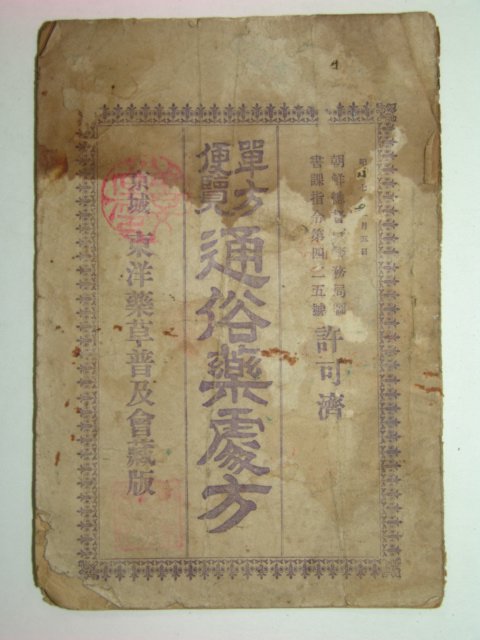 昭 七 月五日
朝鮮總督府警務局圖
書課指令第四二五號
許可濟
單方
便覽
通俗藥處方
京城 東洋藥草普及會藏版